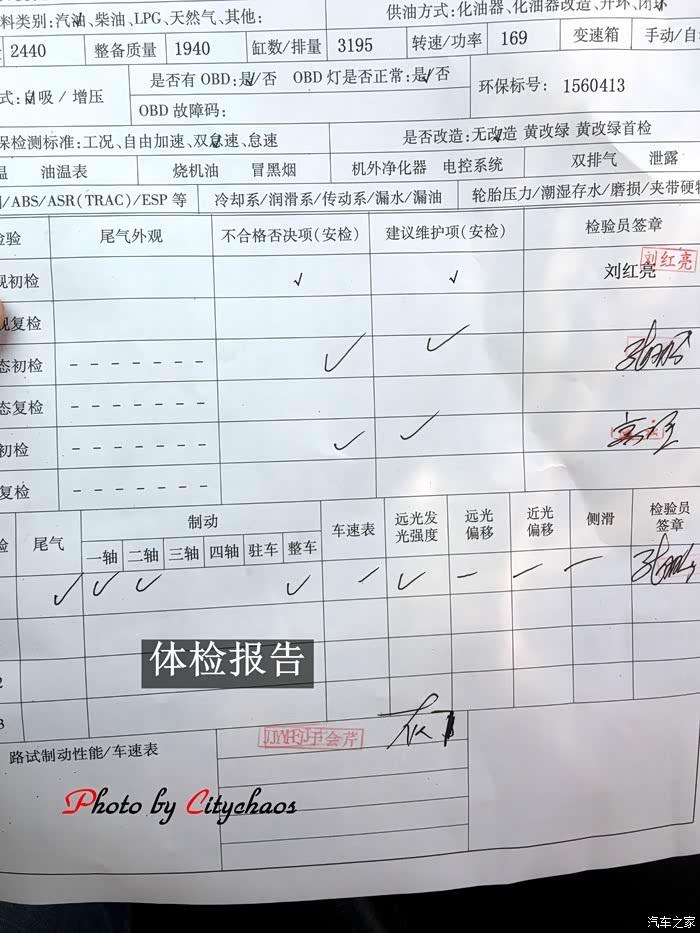 料类别:汽油、柴油、LPG、天然气、其他: 供油方式:化油器、化油器改造、开环、闭环
2440 整备质量 1940 缸数/排量 3195 转速/功率 169 变速箱 手动/自
式:自吸/增压 是否有OBD:是/否 OBD灯是否正常:是/否 环保标号: 1560413
OBD故障码:
保检测标准:工况、自由加速、双怠速、怠速 是否改造:无改造 黄改绿 黄改绿首检
温 油温表 烧机油 冒黑烟 机外净化器 电控系统 双排气 泄露
/ABS/ASR(TRAC)/ESP等 冷却系/润滑系/传动系/漏水/漏油 轮胎压力/潮湿存水/磨损/夹带硬物
检验 尾气外观 不合格否决项(安检) 建议维护项(安检) 检验员签章
观初检 √ √ 刘红亮 刘红亮
观复检
态初检 ------- √ √
态复检 -------
初检 ------- √ √
复检 -------
检 尾气 制动 车速表 远光发光强度 远光偏移 近光偏移 侧滑 检验员签章
一轴 二轴 三轴 四轴 驻车 整车
√ √ √ √ — √ — — —
体检报告
2
3
路试制动性能/车速表
Photo by Citychaos
汽车之家